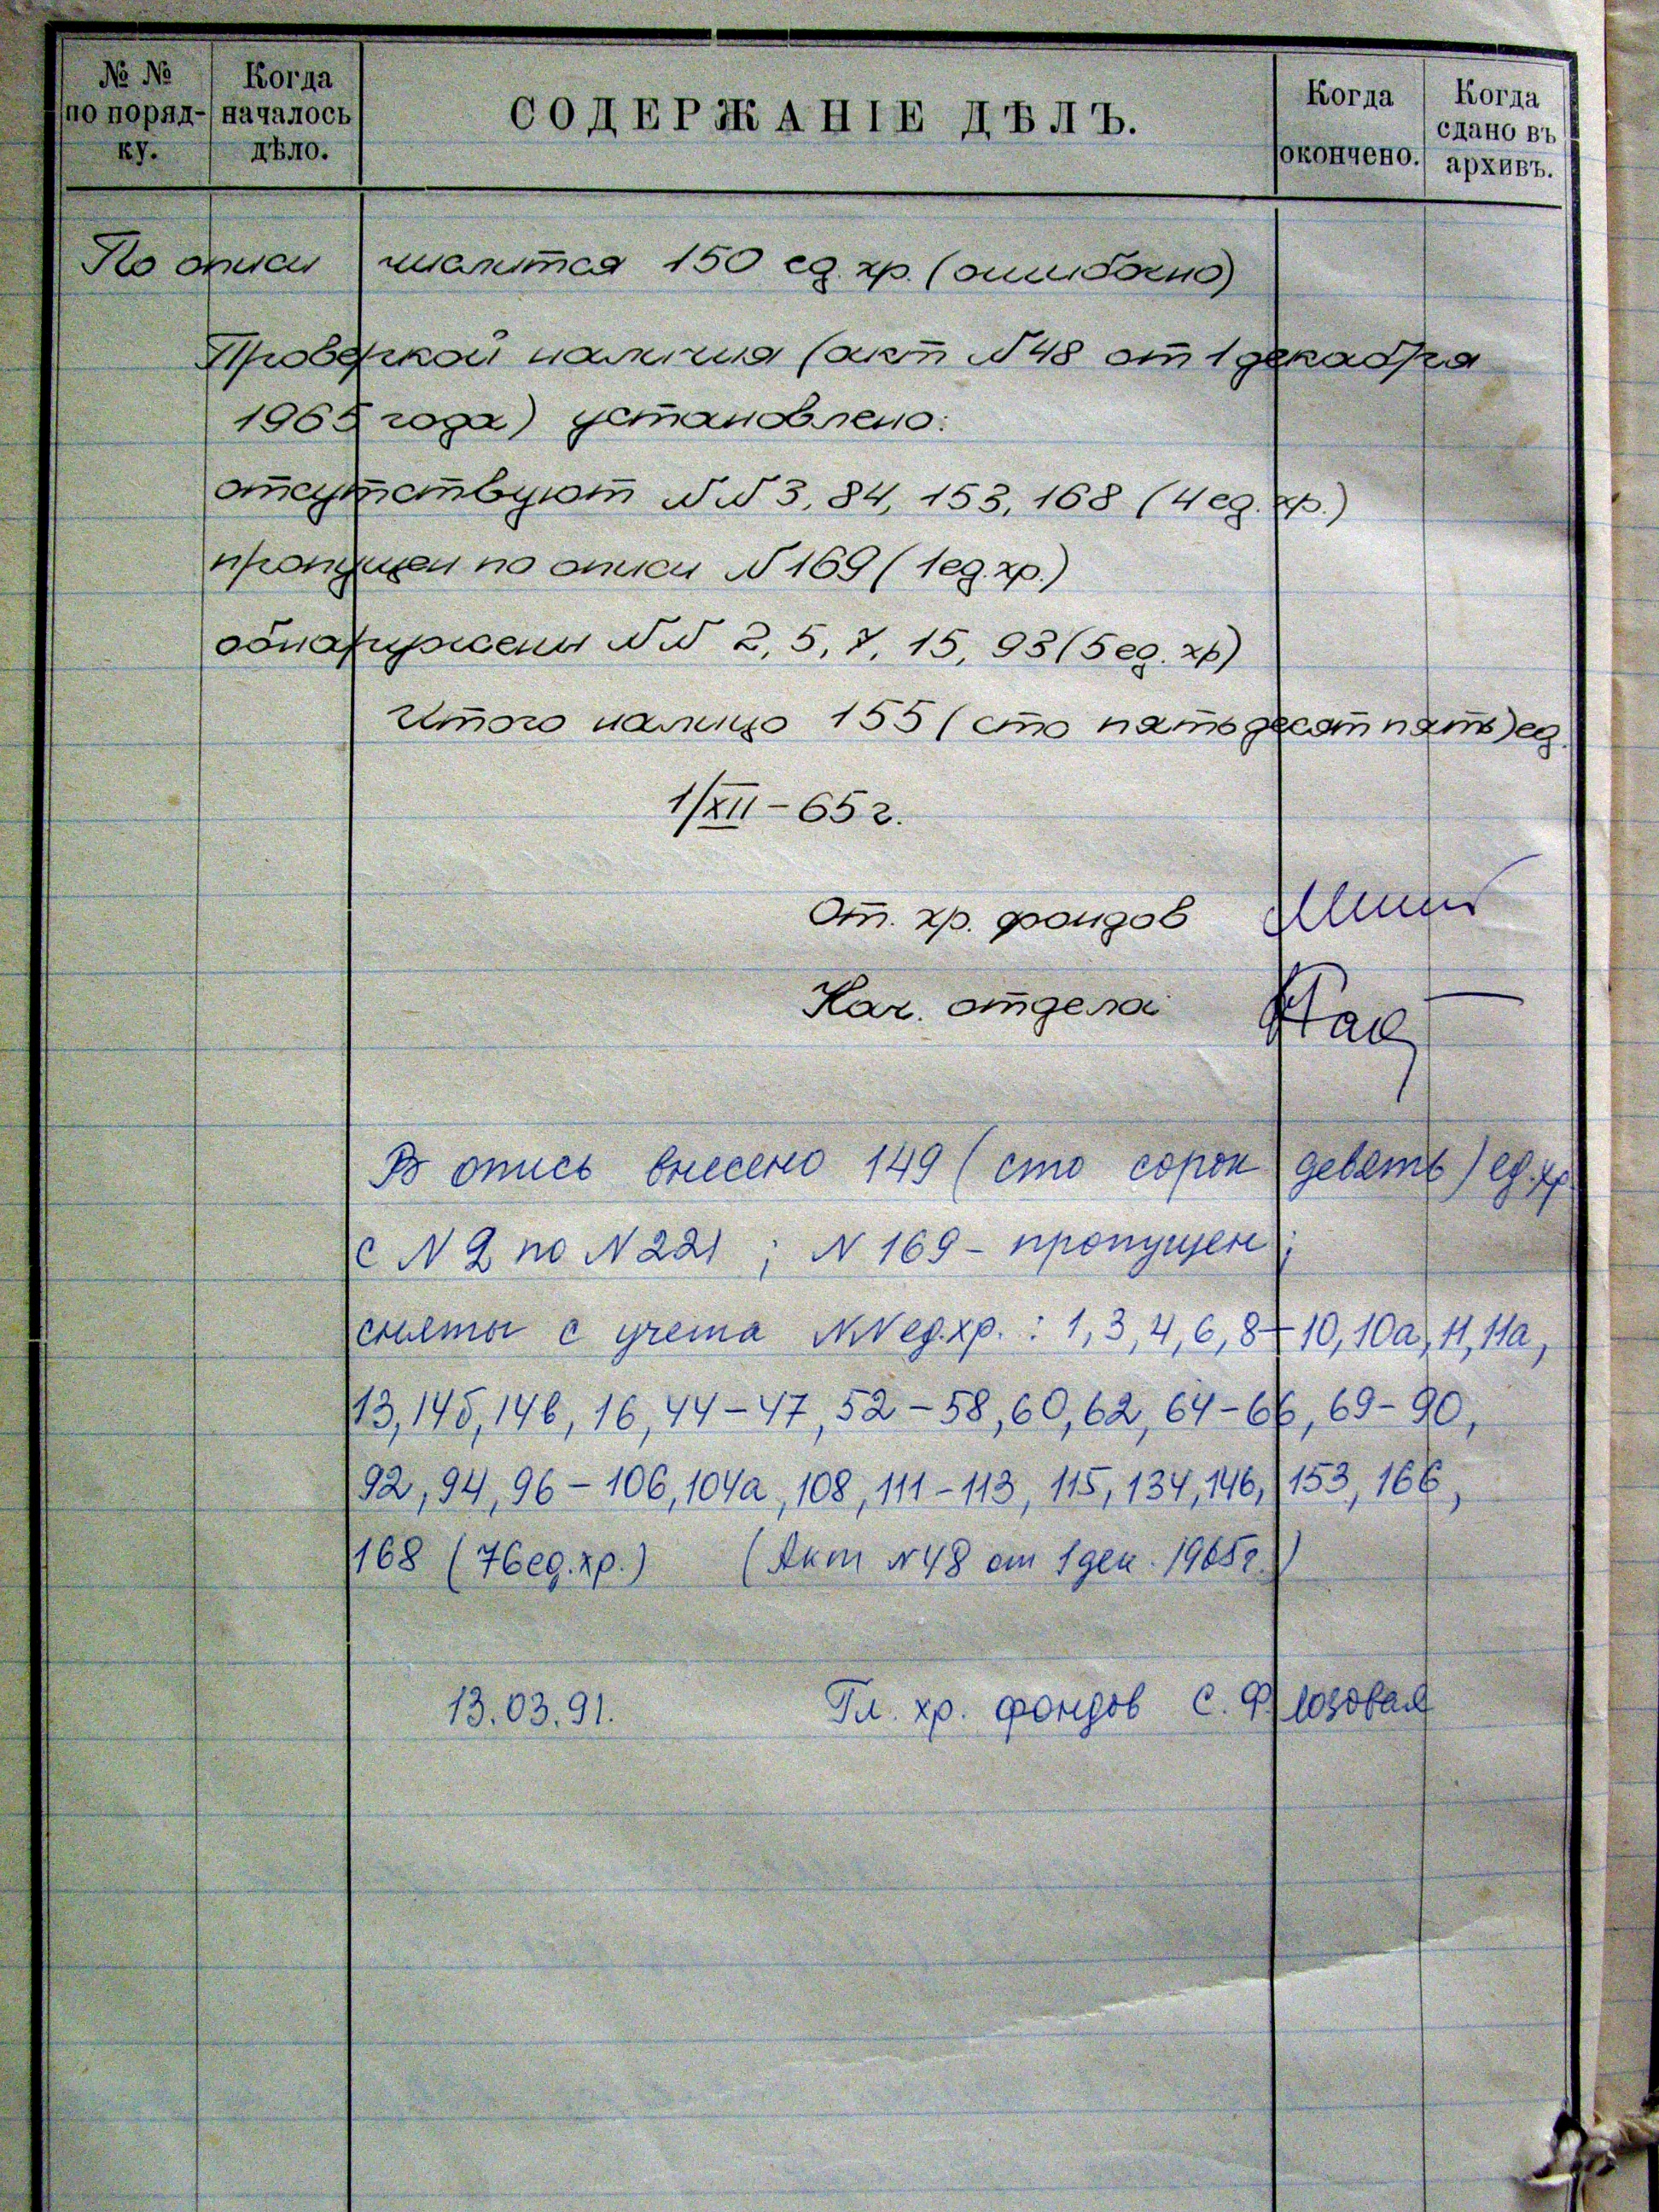 № №
по поряд-
ку.
Когда
началось
дѣло.
СОДЕРЖАНІЕ ДѢЛЪ.
Когда
окончено.
Когда
сдано въ
архивъ.
По описи числится 150 ед. хр. (ошибочно)
Проверкой наличия (акт N48 от 1 декабря
1965 года) установлено:
отсутствуют NN 3, 84, 153, 168 (4 ед. хр.)
пропущен по описи N169 (1 ед. хр.)
обнаружены NN 2, 5, 7, 15, 93 (5 ед. хр)
Итого налицо 155 (сто пятьдесят пять) ед.
1/XII – 65 г.
От. хр. фондов
Нач. отдела
В опись внесено 149 (сто сорок девять) ед. хр.
с N 2 по N 221 ; N 169 – пропущен ;
сняты с учета NN ед.хр. : 1, 3, 4, 6, 8–10, 10а, 11, 11а,
13, 14б, 14в, 16, 44–47, 52–58, 60, 62, 64–66, 69–90,
92, 94, 96–106, 104а, 108, 111–113, 115, 134, 146, 153, 166,
168 (76 ед. хр.) (Акт N48 от 1 дек. 1965г.)
13.03.91. Гл. хр. фондов С. Ф. Лозовая